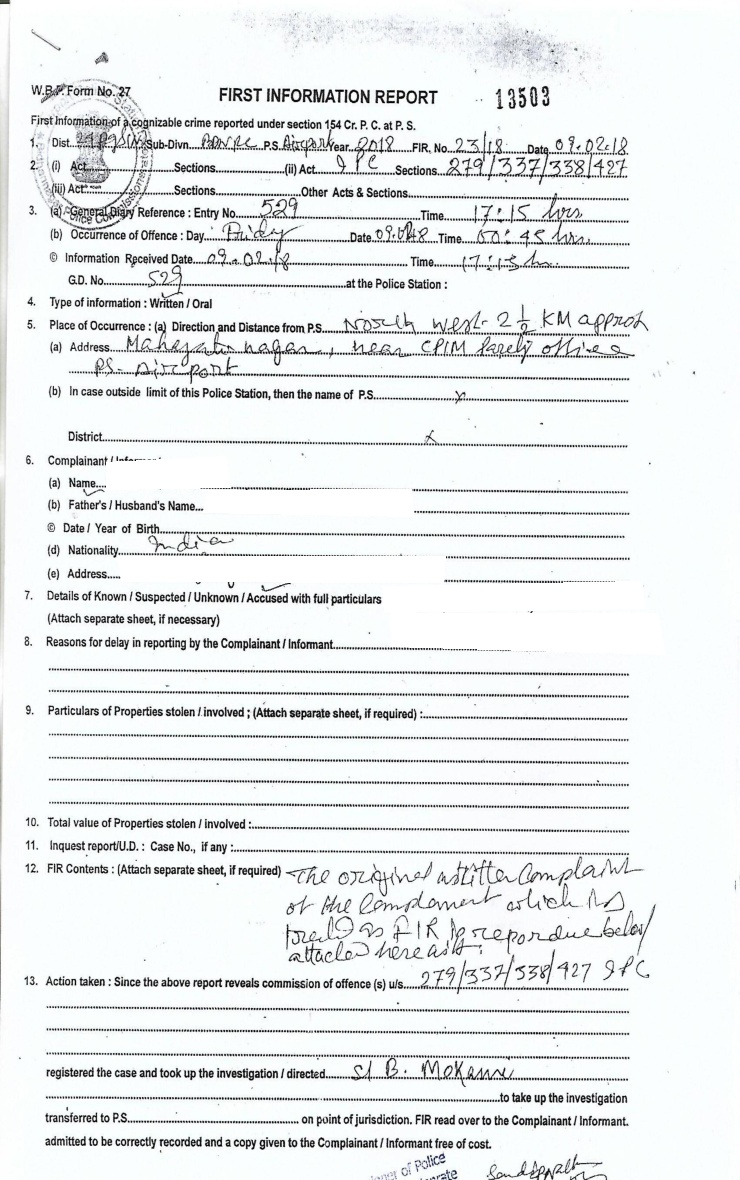 W.B.P. Form No. 27
FIRST INFORMATION REPORT
13503
First Information of a cognizable crime reported under section 154 Cr. P. C. at P. S.
1. Dist. Sub-Divn. P.S. Airport Year 2018 FIR, No. 23/18 Date 09.02.18
2. (i) Act Sections. (ii) Act. IPC Sections. 279/337/338/427
(iii) Act Sections. Other Acts & Sections.
3. (a) General Diary Reference : Entry No. 529 Time 17:15 hrs
(b) Occurrence of Offence : Day. Friday Date Time 00:45 hrs.
© Information Received Date. 09.02.18 Time 17:15 hr.
G.D. No. 529 at the Police Station :
4. Type of information : Written / Oral
5. Place of Occurrence : (a) Direction and Distance from P.S. North West- 2 1/2 KM approx
(a) Address nagar, near CPIM Party office
PS- Airport
(b) In case outside limit of this Police Station, then the name of P.S. x
District x
6. Complainant /
(a) Name
(b) Father's / Husband's Name
© Date / Year of Birth
(d) Nationality India
(e) Address
7. Details of Known / Suspected / Unknown / Accused with full particulars
(Attach separate sheet, if necessary)
8. Reasons for delay in reporting by the Complainant / Informant.
9. Particulars of Properties stolen / involved ; (Attach separate sheet, if required) :
10. Total value of Properties stolen / involved :
11. Inquest report/U.D. : Case No., if any :
12. FIR Contents : (Attach separate sheet, if required) The original written Complaint
of the which is
as FIR is below
attached
13. Action taken : Since the above report reveals commission of offence (s) u/s. 279/337/338/427 IPC
registered the case and took up the investigation / directed SI B.
to take up the investigation
transferred to P.S. on point of jurisdiction. FIR read over to the Complainant / Informant.
admitted to be correctly recorded and a copy given to the Complainant / Informant free of cost.
of Police